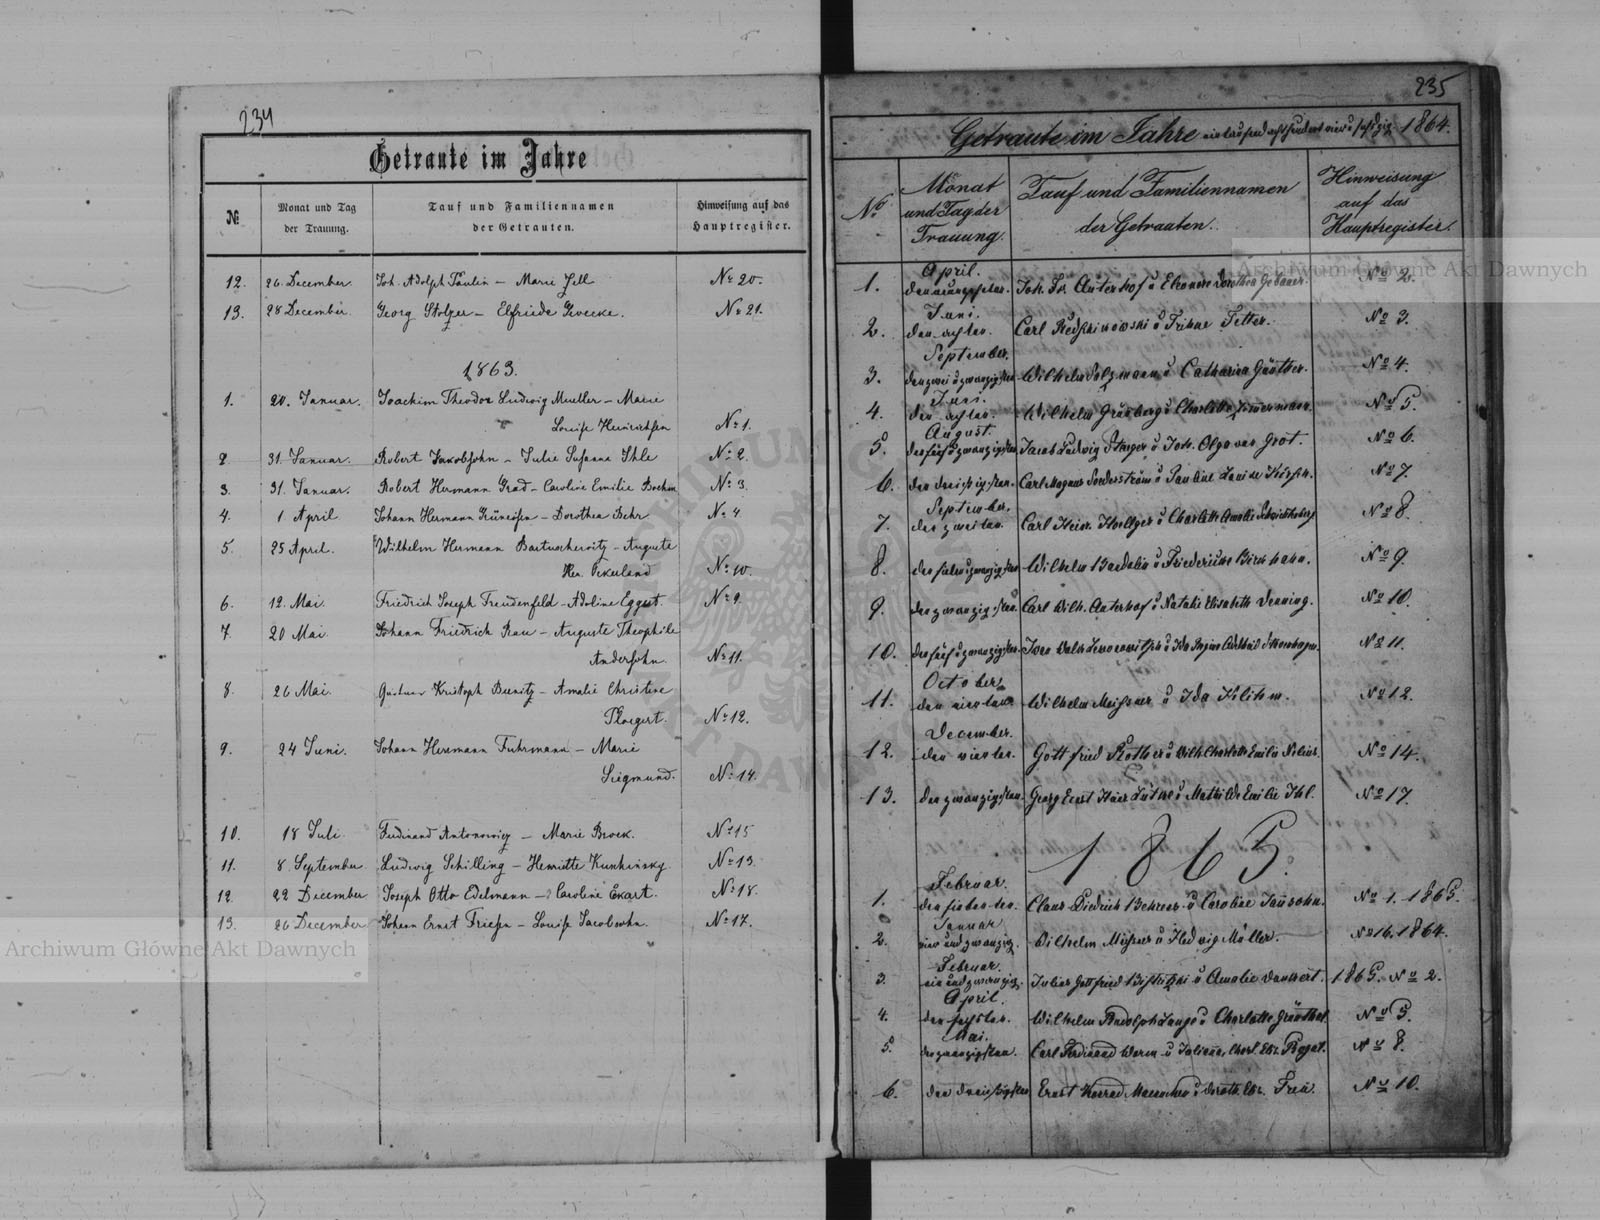 234
Getraute im Jahre
№
Monat und Tag
der Trauung.
Tauf und Familiennamen
der Getrauten.
Hinweisung auf das
Hauptregister.
12. 26 December. Joh. Adolph Paulin – Marie Jell No 20.
13. 28 December. Georg Stolzer – Elfriede No 21.
1863.
1. 20. Januar. Joachim Theodor Ludwig Mueller – Marie
Louise Heinrichsen No 1.
2. 31. Januar. Robert Jakobsohn – Julie Susanna Ihle No 2.
3. 31. Januar. Robert Hermann Grad – Caroline Emilie Boehm No 3.
4. 1 April Johann Hermann – Dorothea Behr No 4
5. 25 April. Wilhelm Hermann Bartuschewitz – Auguste
No 10.
6. 12. Mai. Friedrich Joseph Freudenfeld – Adoline Eggert. No 9
7. 20 Mai. Johann Friedrich Rau – Auguste Theophile
Andersohn. No 11.
8. 26 Mai. Gustav Kristoph – Amalie Christine
Ploegert. No 12.
9. 24 Juni. Johann Herrmann Fuhrmann – Marie
Siegmund. No 14.
10. 18 Juli. Ferdinand Antonowicz – Marie Brock. No 15
11. 8. September Ludwig Schilling – Henriette No 13.
12. 22 December Joseph Otto Edelmann – Caroline Ekart. No 18.
13. 26 December Johann Ernst Friesen – Louise Jacobsohn. No 17.
Archiwum Główne Akt Dawnych
235
Getraute im Jahre eintausend achthundert vier u sechzig 1864.
No
Monat
und Tag der
Trauung.
Tauf und Familiennamen
der Getrauten.
Hinweisung
auf das
Hauptregister.
Archiwum Główne Akt Dawnych
April.
1. Joh. Fr. Auterhof u Eleonore Dorothea No 2.
Juni.
2. den achten. Carl u Fetter. No 3.
September.
3. den zwei u zwanzigsten Wilhelm Salzmann u Catharina Günther. No 4.
Juni.
4. den achten. Wilhelm Grünberg u Charlotte Zimmermann. No 5.
August.
5. den fünf u zwanzigsten Jacob Ludwig u Joh. Olga van Grot. No 6.
6. den dreissigsten. Carl Magnus Soederström u Pauline Louise No 7.
September.
7. den zweiten. Carl Heinr. Hoeltzer u Charlotte Amalie No 8.
8. Wilhelm u Friederike Birnhahn. No 9.
9. den zwanzigsten. Carl Wilh. Auterhof u Natalie Elisabeth Denning. No 10.
10. den fünf u zwanzigsten. No 11.
October.
11. den vierten Wilhelm Meissner u Ida No 12.
December.
12. den vierten. Gottfried Rother u Wilh. Charlotte Emilie No 14.
13. den zwanzigsten. Georg Ernst Heinr. Lütke u Mathilde Emilie Ihl. No 17.
1865.
Februar.
1. den siebenten. Claus Diedrich Behrens u Caroline No 1. 1865.
Januar
2. vier und zwanzig. Wilhelm u Hedwig Müller. No 16. 1864.
Februar.
3. ein und zwanzig. Julius Gottfried u Amalie Dankert. 1865. No 2.
April.
4. den sechsten. Wilhelm Rudolph Lange u Charlotte Grünthal. No 5.
Mai.
5. den zwanzigsten. Carl Ferdinand Worm u Juliane Charl. Elis. No 8.
6. den dreissigsten Ernst Konrad u Doroth. Elis. No 10.